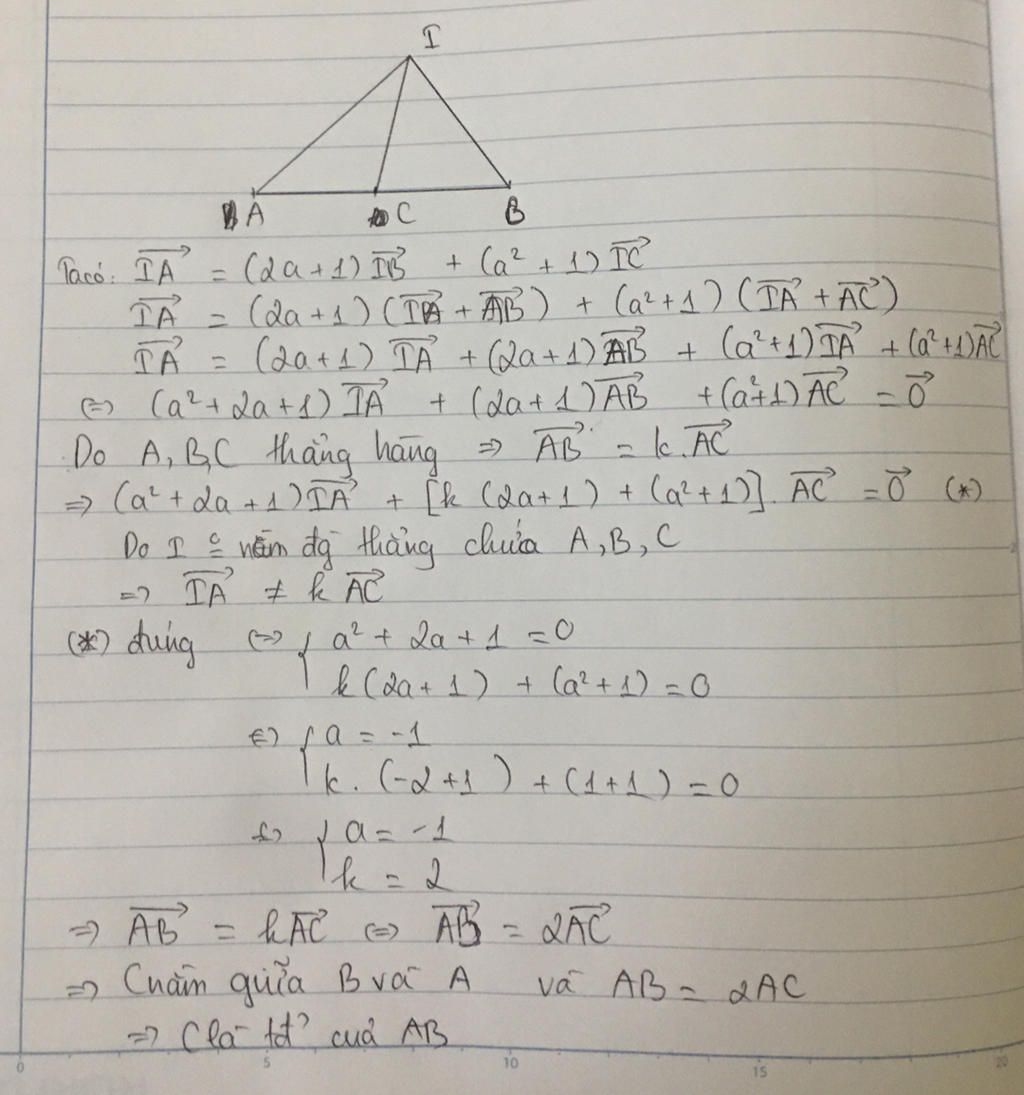 I
A C B
Ta có: $\overrightarrow{IA} = (2a+1)\overrightarrow{IB} + (a^2+1)\overrightarrow{IC}$
$\overrightarrow{IA} = (2a+1)(\overrightarrow{IA} + \overrightarrow{AB}) + (a^2+1)(\overrightarrow{IA} + \overrightarrow{AC})$
$\overrightarrow{IA} = (2a+1)\overrightarrow{IA} + (2a+1)\overrightarrow{AB} + (a^2+1)\overrightarrow{IA} + (a^2+1)\overrightarrow{AC}$
⇔ $(a^2+2a+1)\overrightarrow{IA} + (2a+1)\overrightarrow{AB} + (a^2+1)\overrightarrow{AC} = \vec{0}$
Do A, B, C thẳng hàng ⇒ $\overrightarrow{AB} = k.\overrightarrow{AC}$
⇒ $(a^2+2a+1)\overrightarrow{IA} + [k(2a+1) + (a^2+1)].\overrightarrow{AC} = \vec{0}$ (*)
Do I nằm đg thẳng chứa A, B, C
⇒ $\overrightarrow{IA} \neq k\overrightarrow{AC}$
(*) đúng ⇔ { $a^2+2a+1=0$
$k(2a+1) + (a^2+1) = 0$
⇔ { $a = -1$
$k.(-2+1) + (1+1) = 0$
⇔ { $a = -1$
$k = 2$
⇒ $\overrightarrow{AB} = k\overrightarrow{AC}$ ⇔ $\overrightarrow{AB} = 2\overrightarrow{AC}$
⇒ C nằm giữa B và A và AB = 2AC
⇒ C là tđ' của AB
0 5 10 15 20